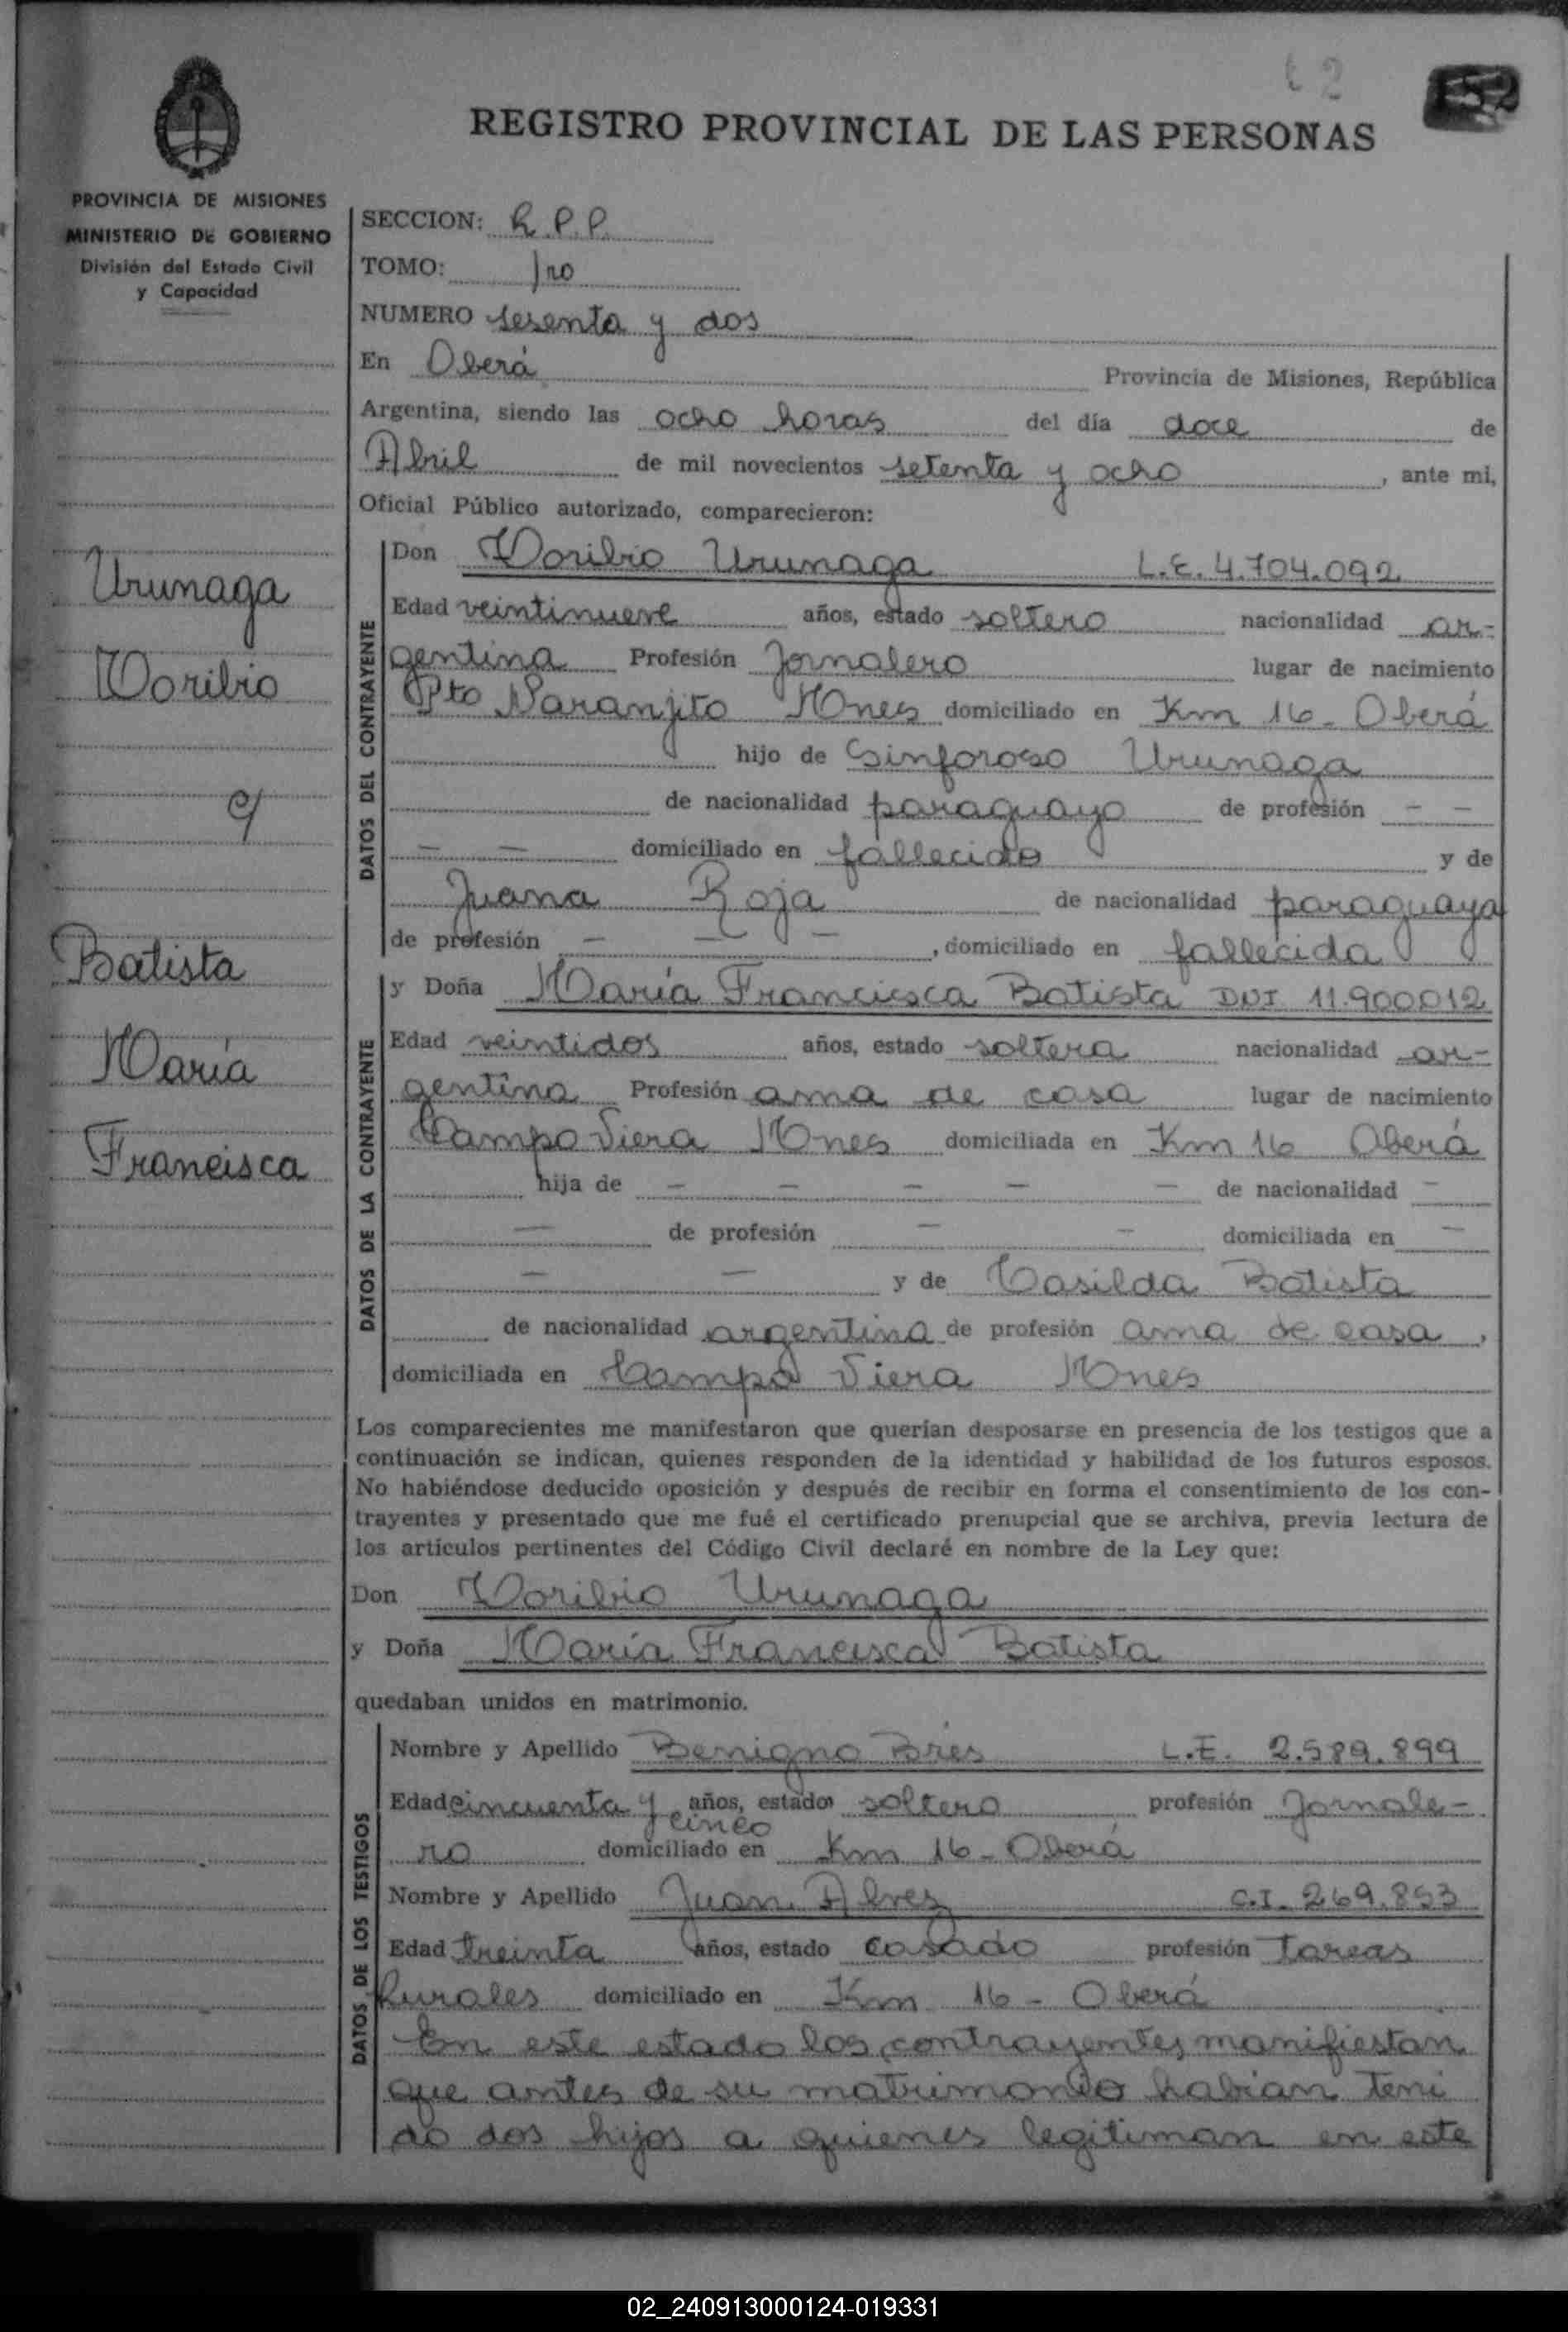 62
REGISTRO PROVINCIAL DE LAS PERSONAS
PROVINCIA DE MISIONES
MINISTERIO DE GOBIERNO
División del Estado Civil
y Capacidad
SECCION: R.P.P.
TOMO: 1ro
NUMERO sesenta y dos
En Oberá Provincia de Misiones, República
Argentina, siendo las ocho horas del día doce de
Abril de mil novecientos setenta y ocho, ante mi,
Oficial Público autorizado, comparecieron:
Urunaga
Toribio
c/
Batista
María
Francisca
DATOS DEL CONTRAYENTE
Don Toribio Urunaga L.E. 4.704.092
Edad veintinueve años, estado soltero nacionalidad ar-
gentina Profesión Jornalero lugar de nacimiento
Pto Naranjito Mnes domiciliado en Km 16 - Oberá
hijo de Sinforoso Urunaga
de nacionalidad paraguayo de profesión - -
- - domiciliado en fallecido y de
Juana Roja de nacionalidad paraguaya
de profesión - - -, domiciliado en fallecida
DATOS DE LA CONTRAYENTE
y Doña María Francisca Batista DNI 11.900012
Edad veintidos años, estado soltera nacionalidad ar-
gentina Profesión ama de casa lugar de nacimiento
Campo Viera Mnes domiciliada en Km 16 Oberá
hija de - - - - - de nacionalidad -
- de profesión - - domiciliada en -
- - y de Casilda Batista
de nacionalidad argentina de profesión ama de casa,
domiciliada en Campo Viera Mnes
Los comparecientes me manifestaron que querían desposarse en presencia de los testigos que a
continuación se indican, quienes responden de la identidad y habilidad de los futuros esposos.
No habiéndose deducido oposición y después de recibir en forma el consentimiento de los con-
trayentes y presentado que me fué el certificado prenupcial que se archiva, previa lectura de
los artículos pertinentes del Código Civil declaré en nombre de la Ley que:
Don Toribio Urunaga
y Doña María Francisca Batista
quedaban unidos en matrimonio.
DATOS DE LOS TESTIGOS
Nombre y Apellido Benigno Brés L.E. 2.589.899
Edad cincuenta y cinco años, estado soltero profesión Jornale-
ro domiciliado en Km 16 - Oberá
Nombre y Apellido Juan Alvez C.I. 269.853
Edad treinta años, estado casado profesión Tareas
Rurales domiciliado en Km 16 - Oberá
En este estado los contrayentes manifiestan
que antes de su matrimonio habian teni
do dos hijos a quienes legitiman en este
02_240913000124-019331